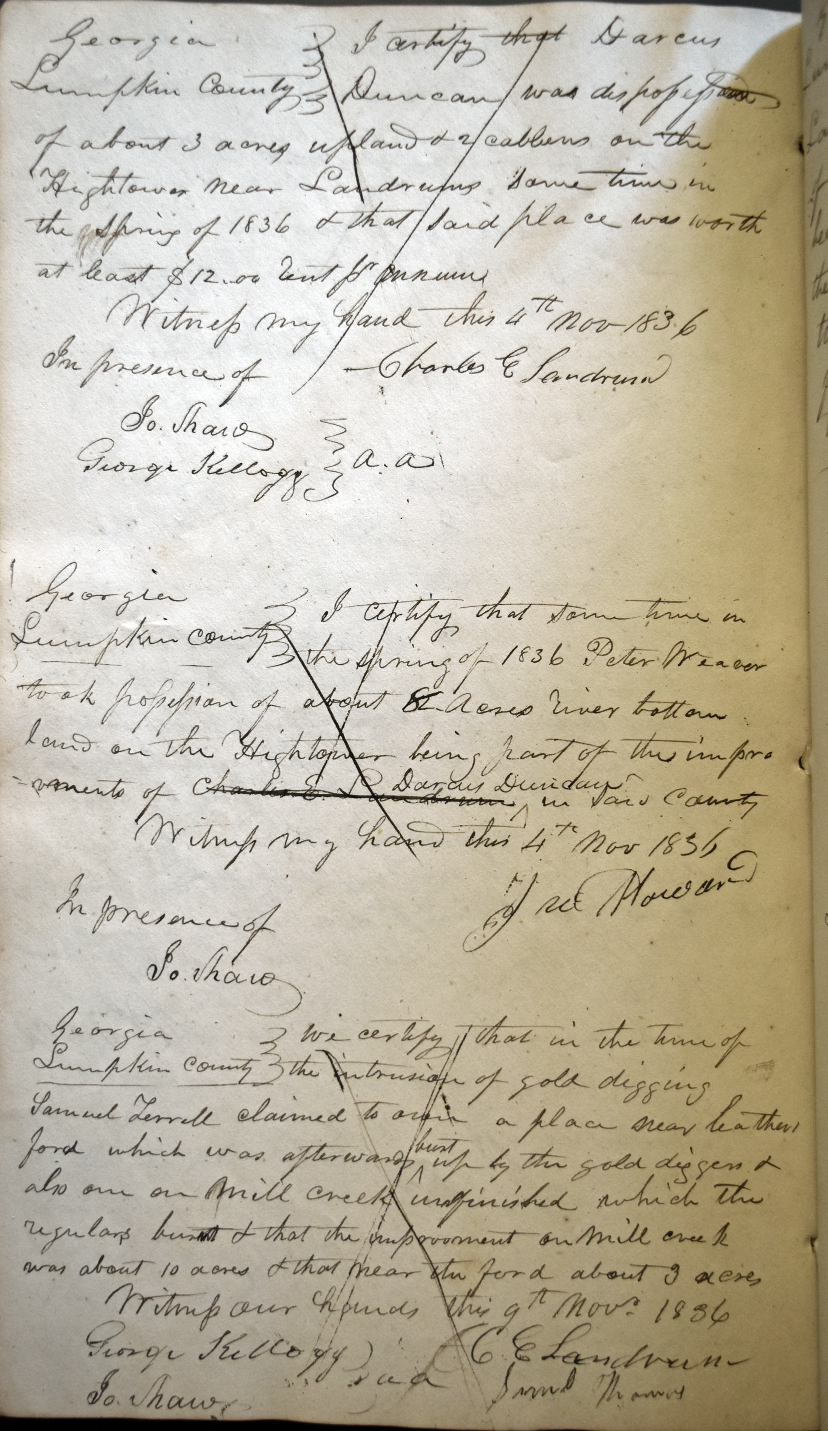 Georgia I certify that Darcus
Lumpkin County Duncan was dispossessed
of about 3 acres upland & 2 cabbens on the
Hightower near Landrums some time in
the spring of 1836 & that said place was worth
at least $12.00 rent pr annum
Witness my hand this 4th Nov 1836
In presence of Charles E Landrum
Jo. Shaw
George Kellogg a.a
Georgia I certify that some time in
Lumpkin county the spring of 1836 Peter Weaver
took possession of about Acres river bottom
land on the Hightower being part of the impro
vments of Charles E. Landrum Darcus Duncan in said County
Witness my hand this 4th Nov 1836
Howard
In presence of
Jo. Shaw
Georgia we certify that in the time of
Lumpkin County the intrusion of gold digging
Samuel Terrell claimed to own a place near leathers
ford which was afterwards burst up by the gold diggers &
also one on Mill creek unfinished which the
regulars burnt & that the improvment on Mill creek
was about 10 acres & that near the ford about 3 acres
Witness our hands this 9th Novr 1836
George Kellogg a a C E Landrum
Jo. Shaw Thomas